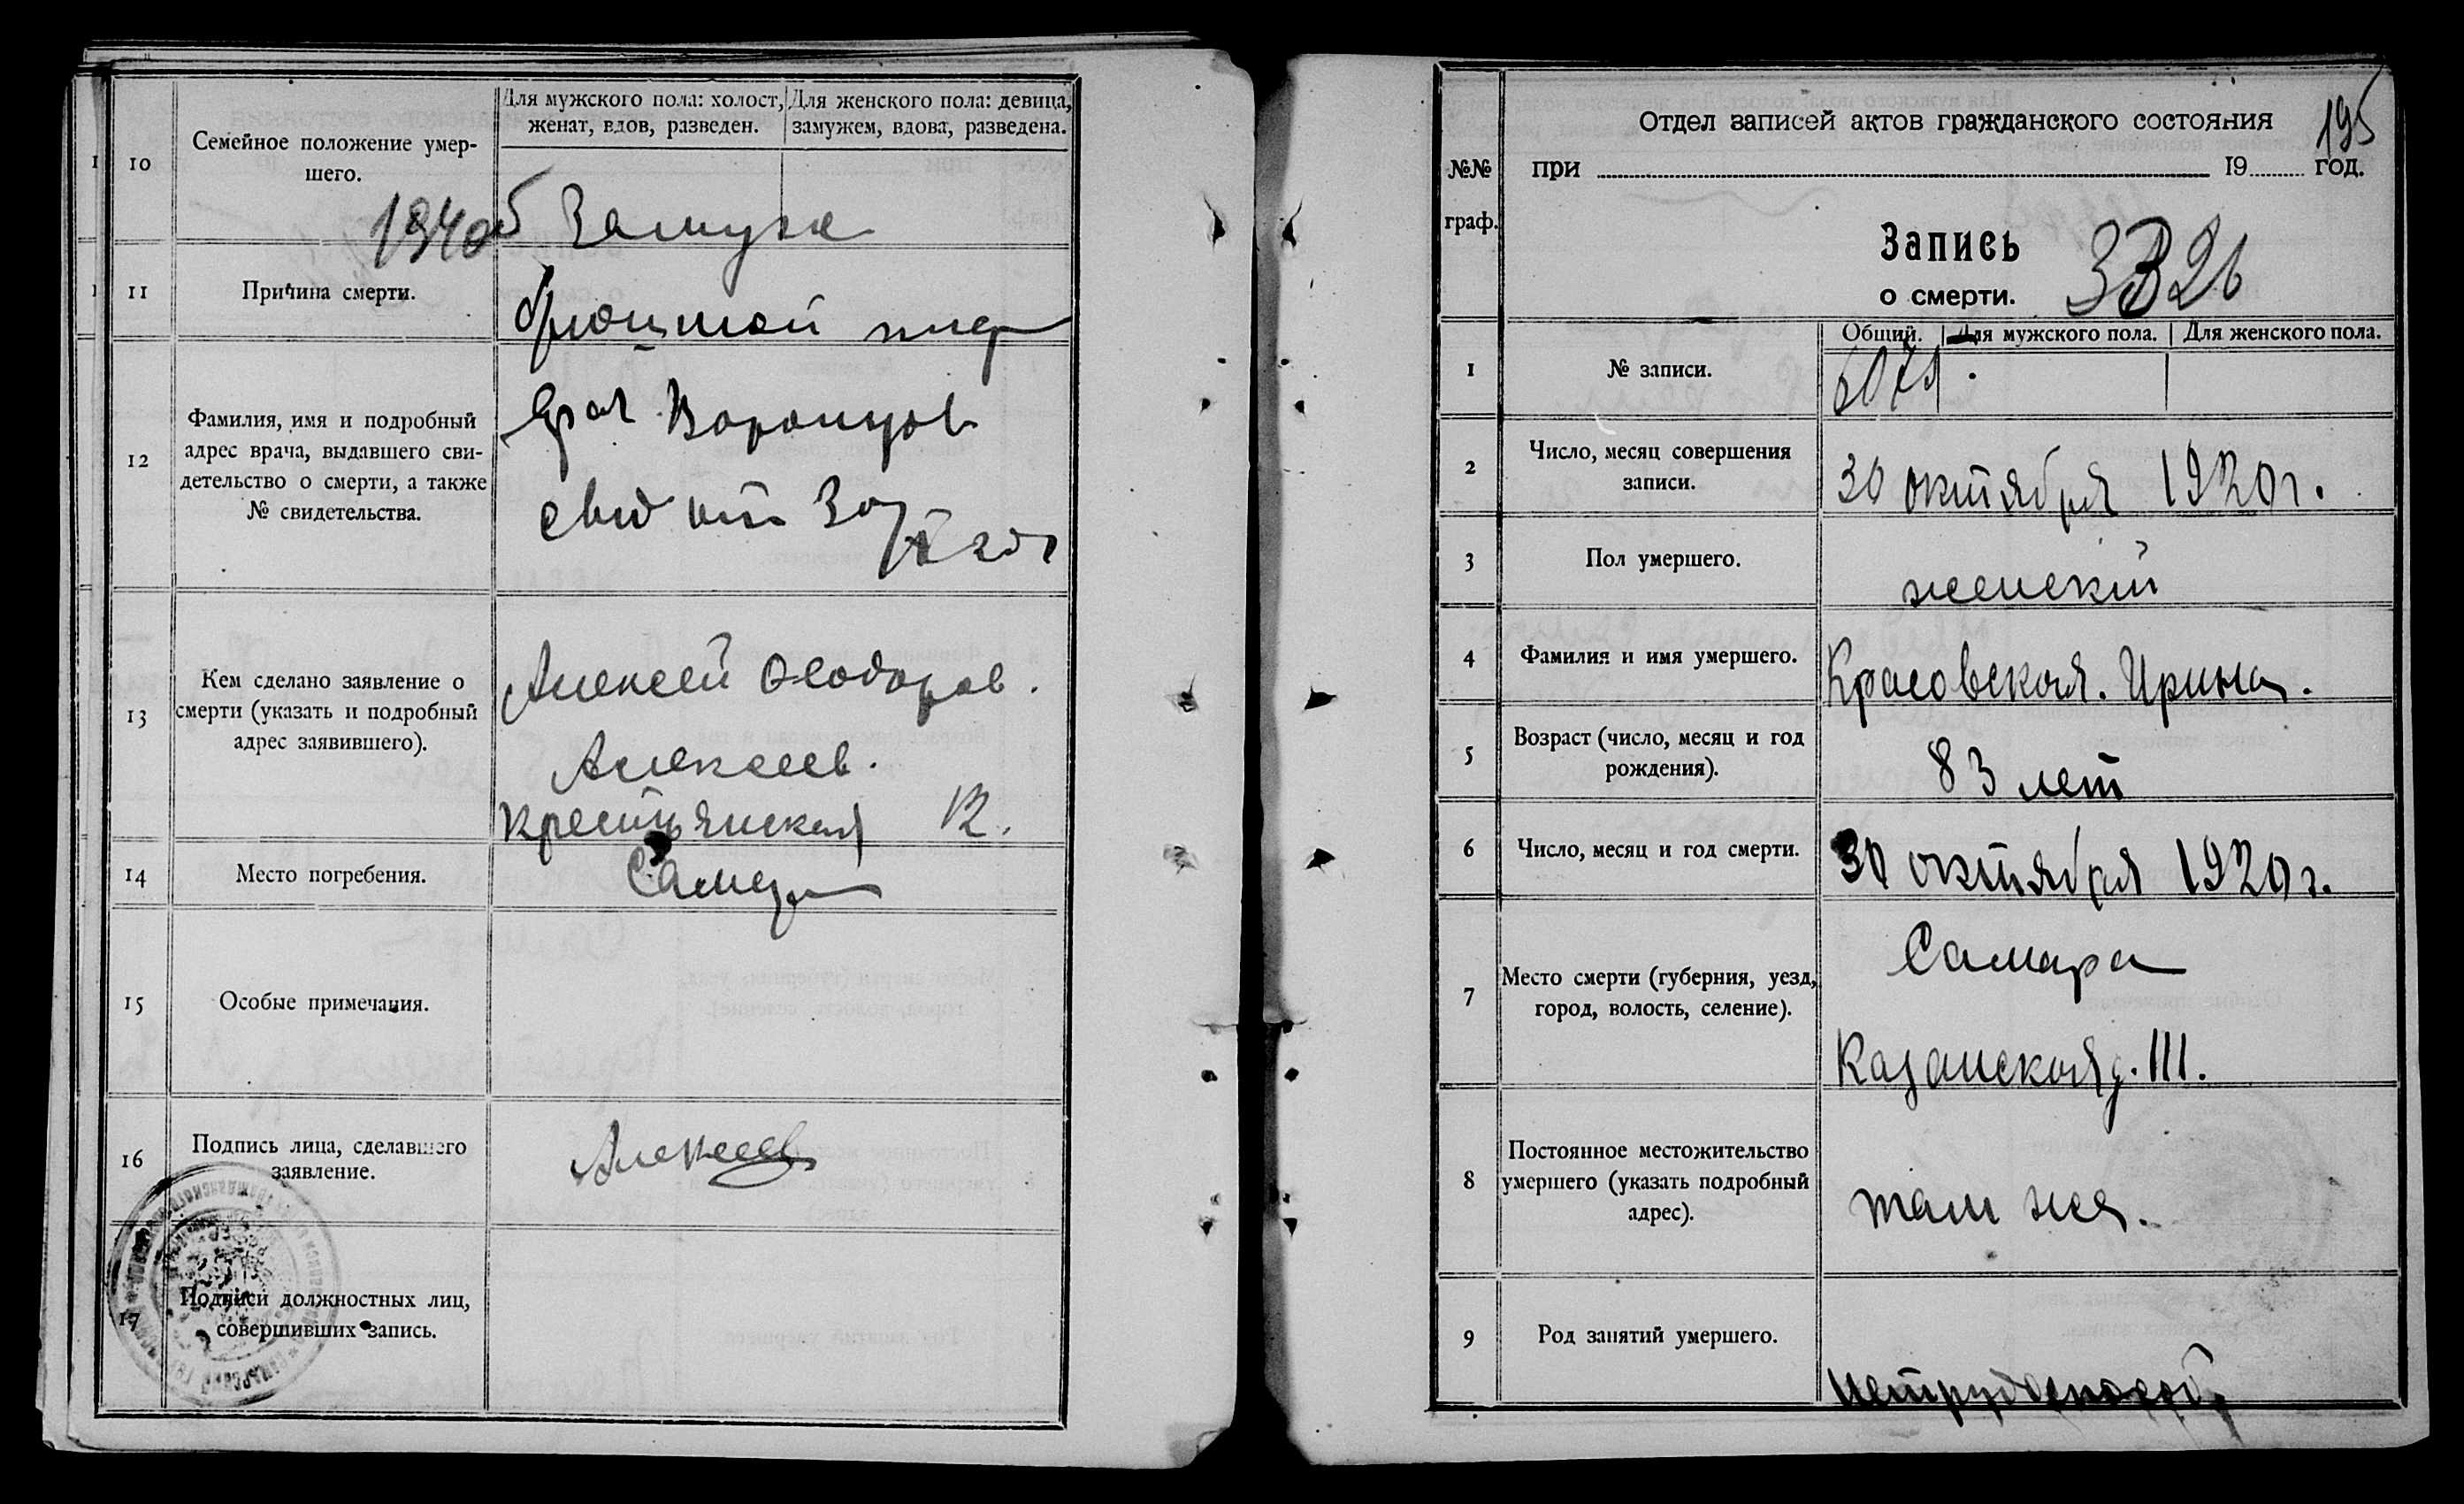 10
Семейное положение умер-
шего.
Для мужского пола: холост,
женат, вдов, разведен.
Для женского пола: девица,
замужем, вдова, разведена.
1940б Замуж
11
Причина смерти.
брюшной тиф
12
Фамилия, имя и подробный
адрес врача, выдавшего сви-
детельство о смерти, а также
№ свидетельства.
врач Воронцов
свид от 30/X 20 г
13
Кем сделано заявление о
смерти (указать и подробный
адрес заявившего).
Алексей Феодоров.
Алексеев.
Крестьянская 12.
14
Место погребения.
Самара
15
Особые примечания.
16
Подпись лица, сделавшего
заявление.
Алексеев
17
Подписи должностных лиц,
совершивших запись.
195
Отдел записей актов гражданского состояния
№№
граф.
при 19 год.
Запись
о смерти.
Общий. Для мужского пола. Для женского пола.
1
№ записи.
2
Число, месяц совершения
записи.
30 октября 1920 г.
3
Пол умершего.
женский
4
Фамилия и имя умершего.
Красовская. Ирина.
5
Возраст (число, месяц и год
рождения).
83 лет
6
Число, месяц и год смерти.
30 октября 1920 г.
7
Место смерти (губерния, уезд,
город, волость, селение).
Самара
Казанская д. 111.
8
Постоянное местожительство
умершего (указать подробный
адрес).
там же.
9
Род занятий умершего.